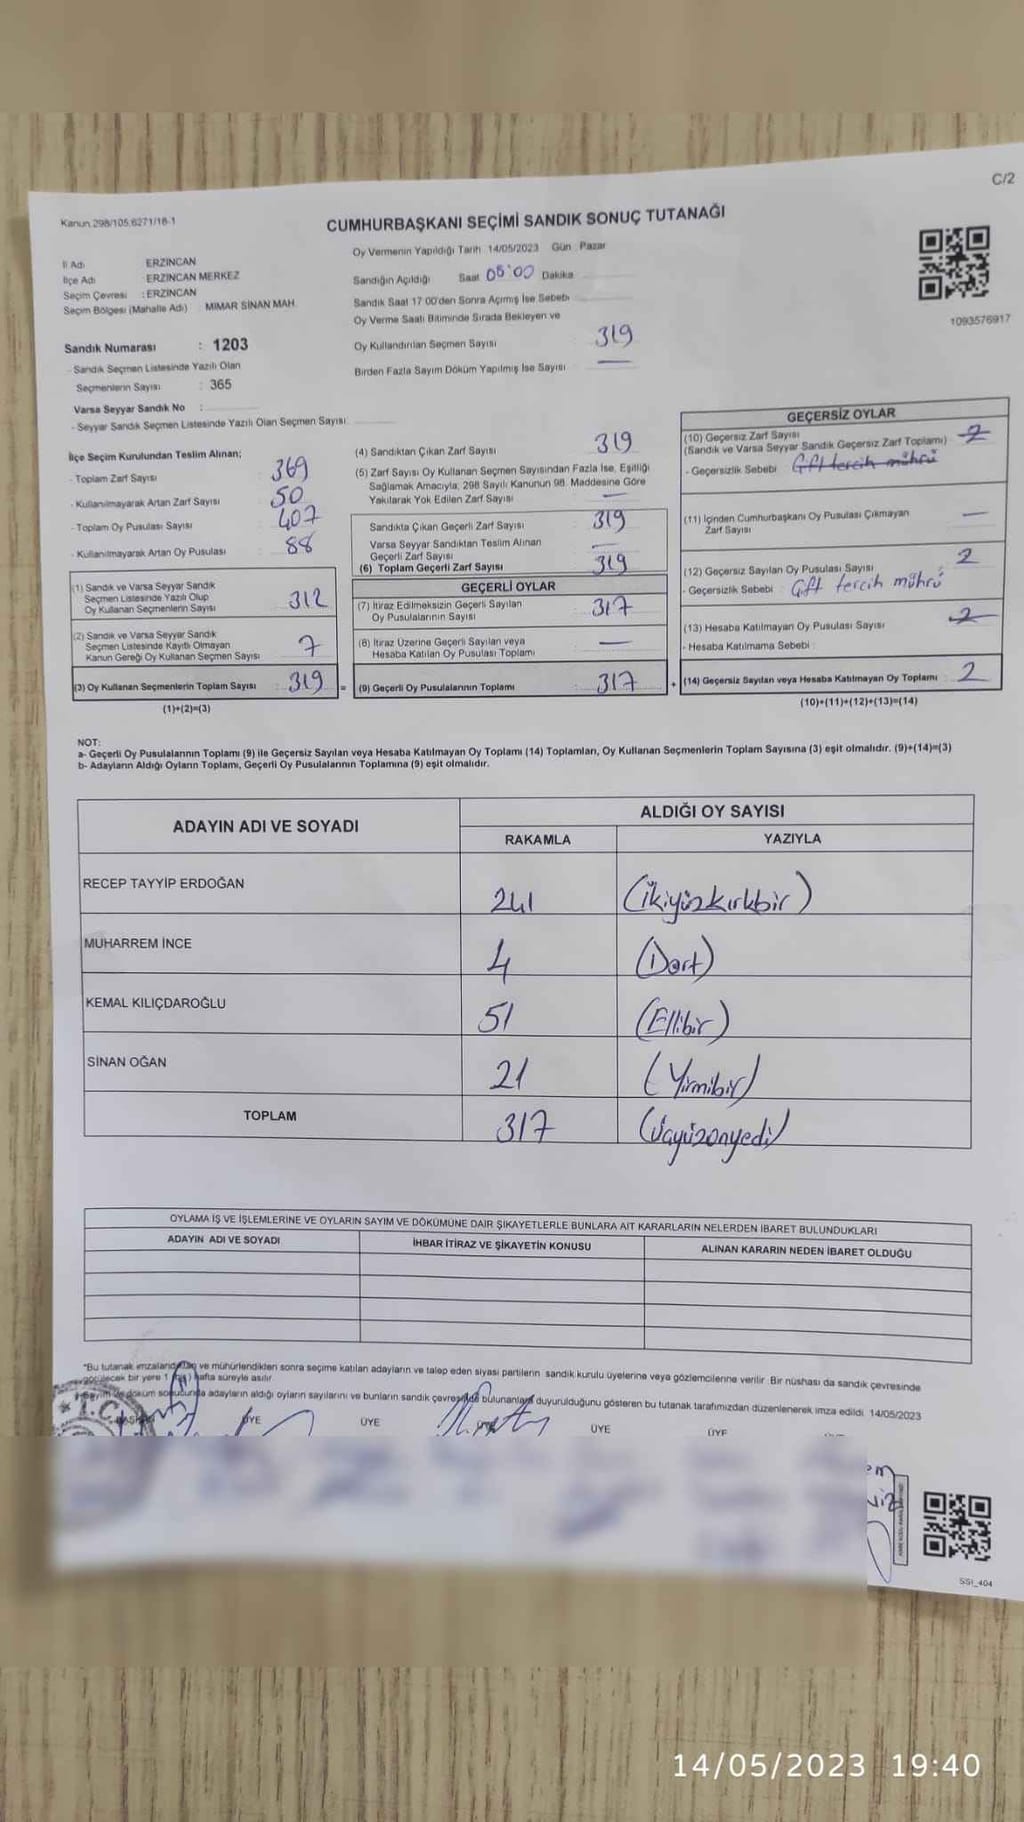 C/2
Kanun 298/105.6271/18-1
CUMHURBAŞKANI SEÇİMİ SANDIK SONUÇ TUTANAĞI
İl Adı ERZİNCAN
İlçe Adı ERZİNCAN MERKEZ
Seçim Çevresi : ERZİNCAN
Seçim Bölgesi (Mahalle Adı) MİMAR SİNAN MAH.
Sandık Numarası : 1203
- Sandık Seçmen Listesinde Yazılı Olan
Seçmenlerin Sayısı : 365
Varsa Seyyar Sandık No :
- Seyyar Sandık Seçmen Listesinde Yazılı Olan Seçmen Sayısı
Oy Vermenin Yapıldığı Tarih 14/05/2023 Gün Pazar
Sandığın Açıldığı Saat 05:00 Dakika
Sandık Saat 17 00'den Sonra Açımış İse Sebebi
Oy Verme Saati Bitiminde Sırada Bekleyen ve
Oy Kullandırılan Seçmen Sayısı 319
Birden Fazla Sayım Döküm Yapılmış İse Sayısı —
1093576917
İlçe Seçim Kurulundan Teslim Alınan;
- Toplam Zarf Sayısı 369
- Kullanılmayarak Artan Zarf Sayısı 50
- Toplam Oy Pusulası Sayısı 407
- Kullanılmayarak Artan Oy Pusulası 88
(1) Sandık ve Varsa Seyyar Sandık
Seçmen Listesinde Yazılı Olup
Oy Kullanan Seçmenlerin Sayısı 312
(2) Sandık ve Varsa Seyyar Sandık
Seçmen Listesinde Kayıtlı Olmayan
Kanun Gereği Oy Kullanan Seçmen Sayısı 7
(3) Oy Kullanan Seçmenlerin Toplam Sayısı 319 =
(1)+(2)=(3)
(4) Sandıktan Çıkan Zarf Sayısı 319
(5) Zarf Sayısı Oy Kullanan Seçmen Sayısından Fazla İse, Eşitliği
Sağlamak Amacıyla; 298 Sayılı Kanunun 98. Maddesine Göre
Yakılarak Yok Edilen Zarf Sayısı —
Sandıkta Çıkan Geçerli Zarf Sayısı 319
Varsa Seyyar Sandıktan Teslim Alınan
Geçerli Zarf Sayısı —
(6) Toplam Geçerli Zarf Sayısı 319
GEÇERLİ OYLAR
(7) İtiraz Edilmeksizin Geçerli Sayılan
Oy Pusulalarının Sayısı 317
(8) İtiraz Üzerine Geçerli Sayılan veya
Hesaba Katılan Oy Pusulası Toplamı —
(9) Geçerli Oy Pusulalarının Toplamı 317 +
GEÇERSİZ OYLAR
(10) Geçersiz Zarf Sayısı 2
(Sandık ve Varsa Seyyar Sandık Geçersiz Zarf Toplamı)
- Geçersizlik Sebebi Çift tercih mührü
(11) İçinden Cumhurbaşkanı Oy Pusulası Çıkmayan
Zarf Sayısı —
(12) Geçersiz Sayılan Oy Pusulası Sayısı 2
- Geçersizlik Sebebi Çift tercih mührü
(13) Hesaba Katılmayan Oy Pusulası Sayısı 2
- Hesaba Katılmama Sebebi
(14) Geçersiz Sayılan veya Hesaba Katılmayan Oy Toplamı 2
(10)+(11)+(12)+(13)=(14)
NOT:
a- Geçerli Oy Pusulalarının Toplamı (9) ile Geçersiz Sayılan veya Hesaba Katılmayan Oy Toplamı (14) Toplamları, Oy Kullanan Seçmenlerin Toplam Sayısına (3) eşit olmalıdır. (9)+(14)=(3)
b- Adayların Aldığı Oyların Toplamı, Geçerli Oy Pusulalarının Toplamına (9) eşit olmalıdır.
ADAYIN ADI VE SOYADI ALDIĞI OY SAYISI
RAKAMLA YAZIYLA
RECEP TAYYİP ERDOĞAN 241 (İkiyüzkırkbir)
MUHARREM İNCE 4 (Dört)
KEMAL KILIÇDAROĞLU 51 (Ellibir)
SİNAN OĞAN 21 (Yirmibir)
TOPLAM 317 (Üçyüzonyedi)
OYLAMA İŞ VE İŞLEMLERİNE VE OYLARIN SAYIM VE DÖKÜMÜNE DAİR ŞİKAYETLERLE BUNLARA AİT KARARLARIN NELERDEN İBARET BULUNDUKLARI
ADAYIN ADI VE SOYADI İHBAR İTİRAZ VE ŞİKAYETİN KONUSU ALINAN KARARIN NEDEN İBARET OLDUĞU
*Bu tutanak ve mühürlendikten sonra seçime katılan adayların ve talep eden siyasi partilerin sandık kurulu üyelerine veya gözlemcilerine verilir. Bir nüshası da sandık çevresinde
bir yere 1 hafta süreyle asılır
döküm sonucunda adayların aldığı oyların sayılarını ve bunların sandık çevresinde bulunanlara duyurulduğunu gösteren bu tutanak tarafımızdan düzenlenerek imza edildi. 14/05/2023
T.C. ÜYE ÜYE ÜYE ÜYE ÜYE
SSI_404
14/05/2023 19:40